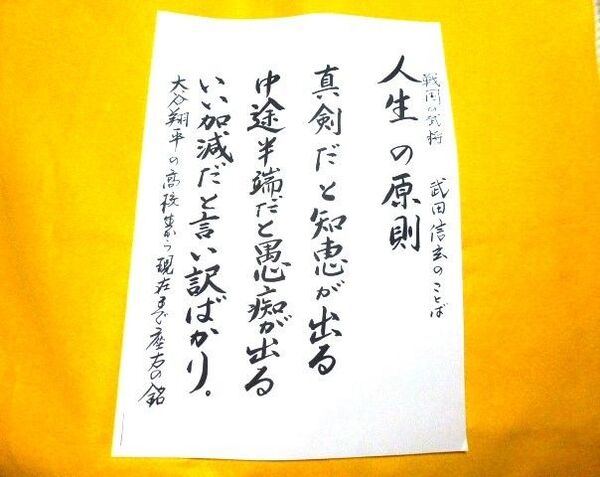 戦国の武将 武田信玄のことば
人生の原則
真剣だと知恵が出る
中途半端だと愚痴が出る
いい加減だと言い訳ばかり。
大谷翔平の高校時から現在まで座右の銘